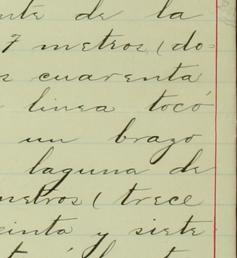 nte de la
7 metros (do-
s cuarenta
linea tocó
un brazo
laguna de
metros (trece
einta y siete